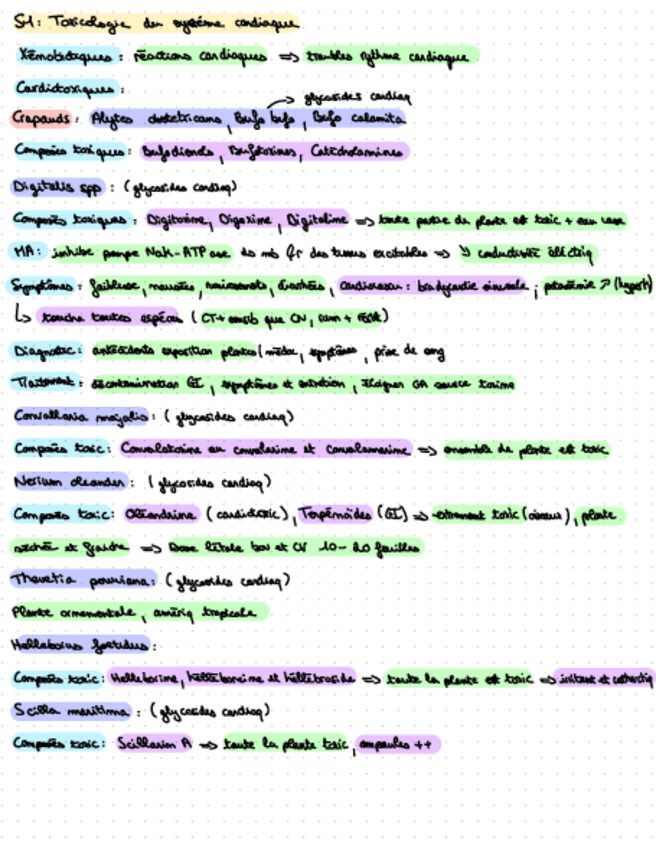 S4: Toxicologie du système cardiaque
Xénobiotiques : réactions cardiaques => troubles rythme cardiaque
Cardiotoxiques :
-> glycosides cardiaq
Crapauds : Alytes obstetricans, Bufo bufo, Bufo calamita
Composés toxiques : Bufodienols, Bufotoxines, Catécholamines
Digitalis spp : (glycosides cardiaq)
Composés toxiques : Digitoxine, Digoxine, Digitaline => toute partie du plante est toxic + eau vase
MA : inhibe pompe NaK-ATPase ds mb des tissus excitables => ↘ conductivité électriq
Symptômes : faiblesse, nausées, vomissements, diarrhées, cardiovasc : bradycardie sinusale ; ↗ (hyperK)
↳ touche toutes espèces (CT + sensib que CN, rum +)
Diagnostic : antécédents exposition plantes/médoc, symptômes, prise de sang
Traitement : décontamination GI, symptômes et entretien, éloigner GA source toxine
Convallaria majalis : (glycosides cardiaq)
Composés toxic : Convalatoxine ou convalarine et convalamarine => ensemble de plante est toxic
Nerium oleander : (glycosides cardiaq)
Composés toxic : Oléandrine (cardiotoxic), Terpénoides (GI) => extrement toxic (oiseaux), plante
séchée et fraiche => Dose létale bov et CV 10-20 feuilles
Thevetia peruviana : (glycosides cardiaq)
Plante ornementale, amériq tropicale
Helleborus foetidus :
Composés toxic : Helleborine, helléboreine et hélébroside => toute la plante est toxic => irritant et cathartiq
Scilla maritima : (glycosides cardiaq)
Composés toxic : Scillaren A => toute la plante toxic, ampoules ++